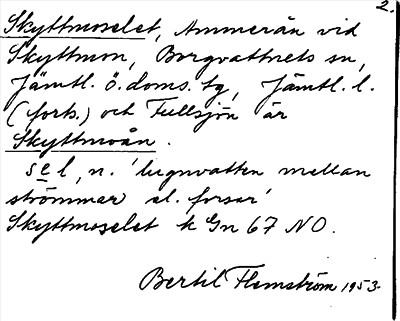 2.
Skyttmoselet, Ammerån vid
Skyttmon, Borgvattnets sn,
Jämtl. ö. doms. tg, Jämtl. l.
(forts.) och Fullsjön är
Skyttmoån.
sel, n. 'lugnvatten mellan
strömmar el. forsar'
Skyttmoselet k Gn 67 NO.
Bertil Flemström 1953.